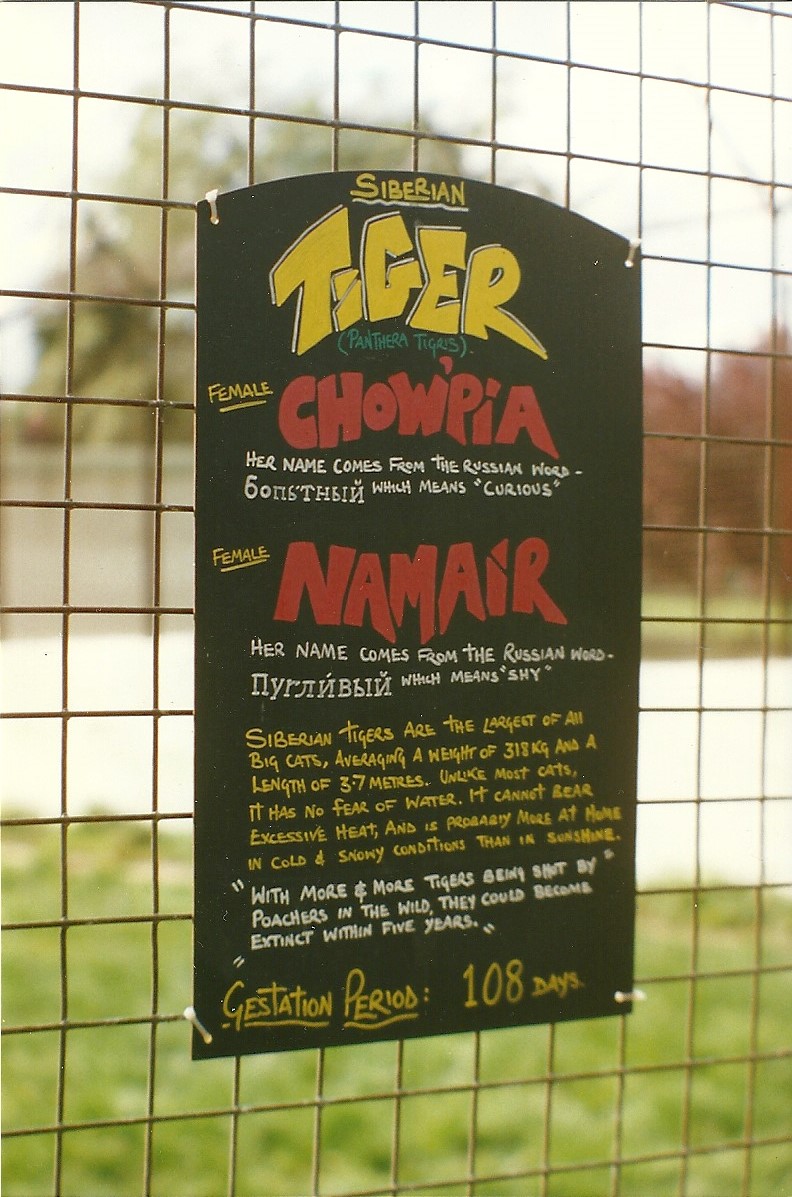 SIBERIAN
TIGER
(PANTHERA TIGRIS).
FEMALE
CHOW'PIA
HER NAME COMES FROM THE RUSSIAN WORD -
бопытный WHICH MEANS "CURIOUS"
FEMALE
NAMAIR
HER NAME COMES FROM THE RUSSIAN WORD-
Пугли́вый WHICH MEANS "SHY"
SIBERIAN TIGERS ARE THE LARGEST OF All
BIG CATS, AVERAGING A WEIGHT OF 318 KG AND A
LENGTH OF 3·7 METRES. UNLIKE MOST CATS,
IT HAS NO FEAR OF WATER. IT CANNOT BEAR
EXCESSIVE HEAT, AND IS PROBABLY MORE AT HOME
IN COLD & SNOWY CONDITIONS THAN IN SUNSHINE.
" WITH MORE & MORE TIGERS BEING SHOT BY "
POACHERS IN THE WILD, THEY COULD BECOME
" EXTINCT WITHIN FIVE YEARS. "
GESTATION PERIOD: 108 DAYS.